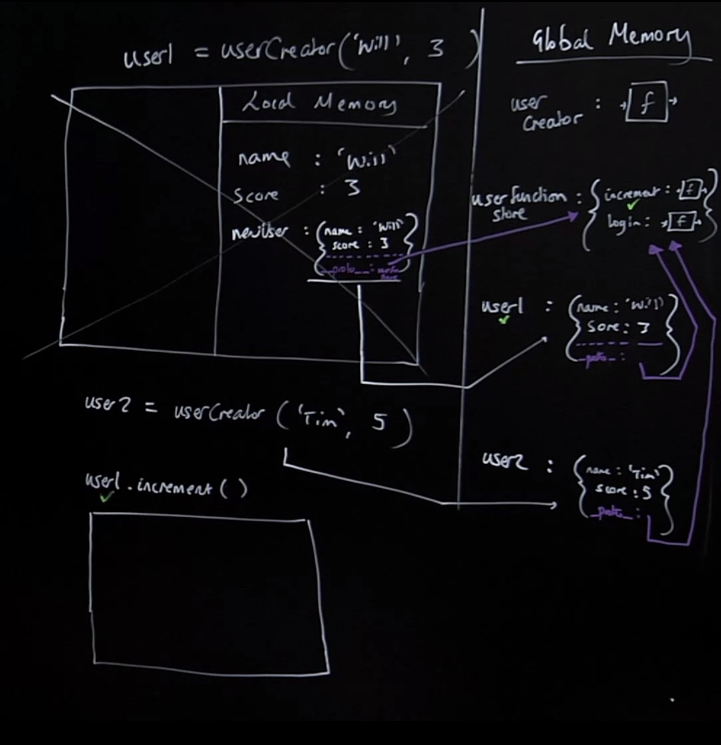 user1 = userCreator('Will', 3)
Local Memory
name : 'Will'
score : 3
newUser : {name : 'Will'
score : 3
__proto__:
user2 = userCreator('Tim', 5)
user1.increment()
Global Memory
user
Creator : f
userfunction : {increment : f
store
login : f}
user1 : {name : 'Will'
score : 3
__proto__ : }
user2 : {name : 'Tim'
score : 5
__proto__ : }